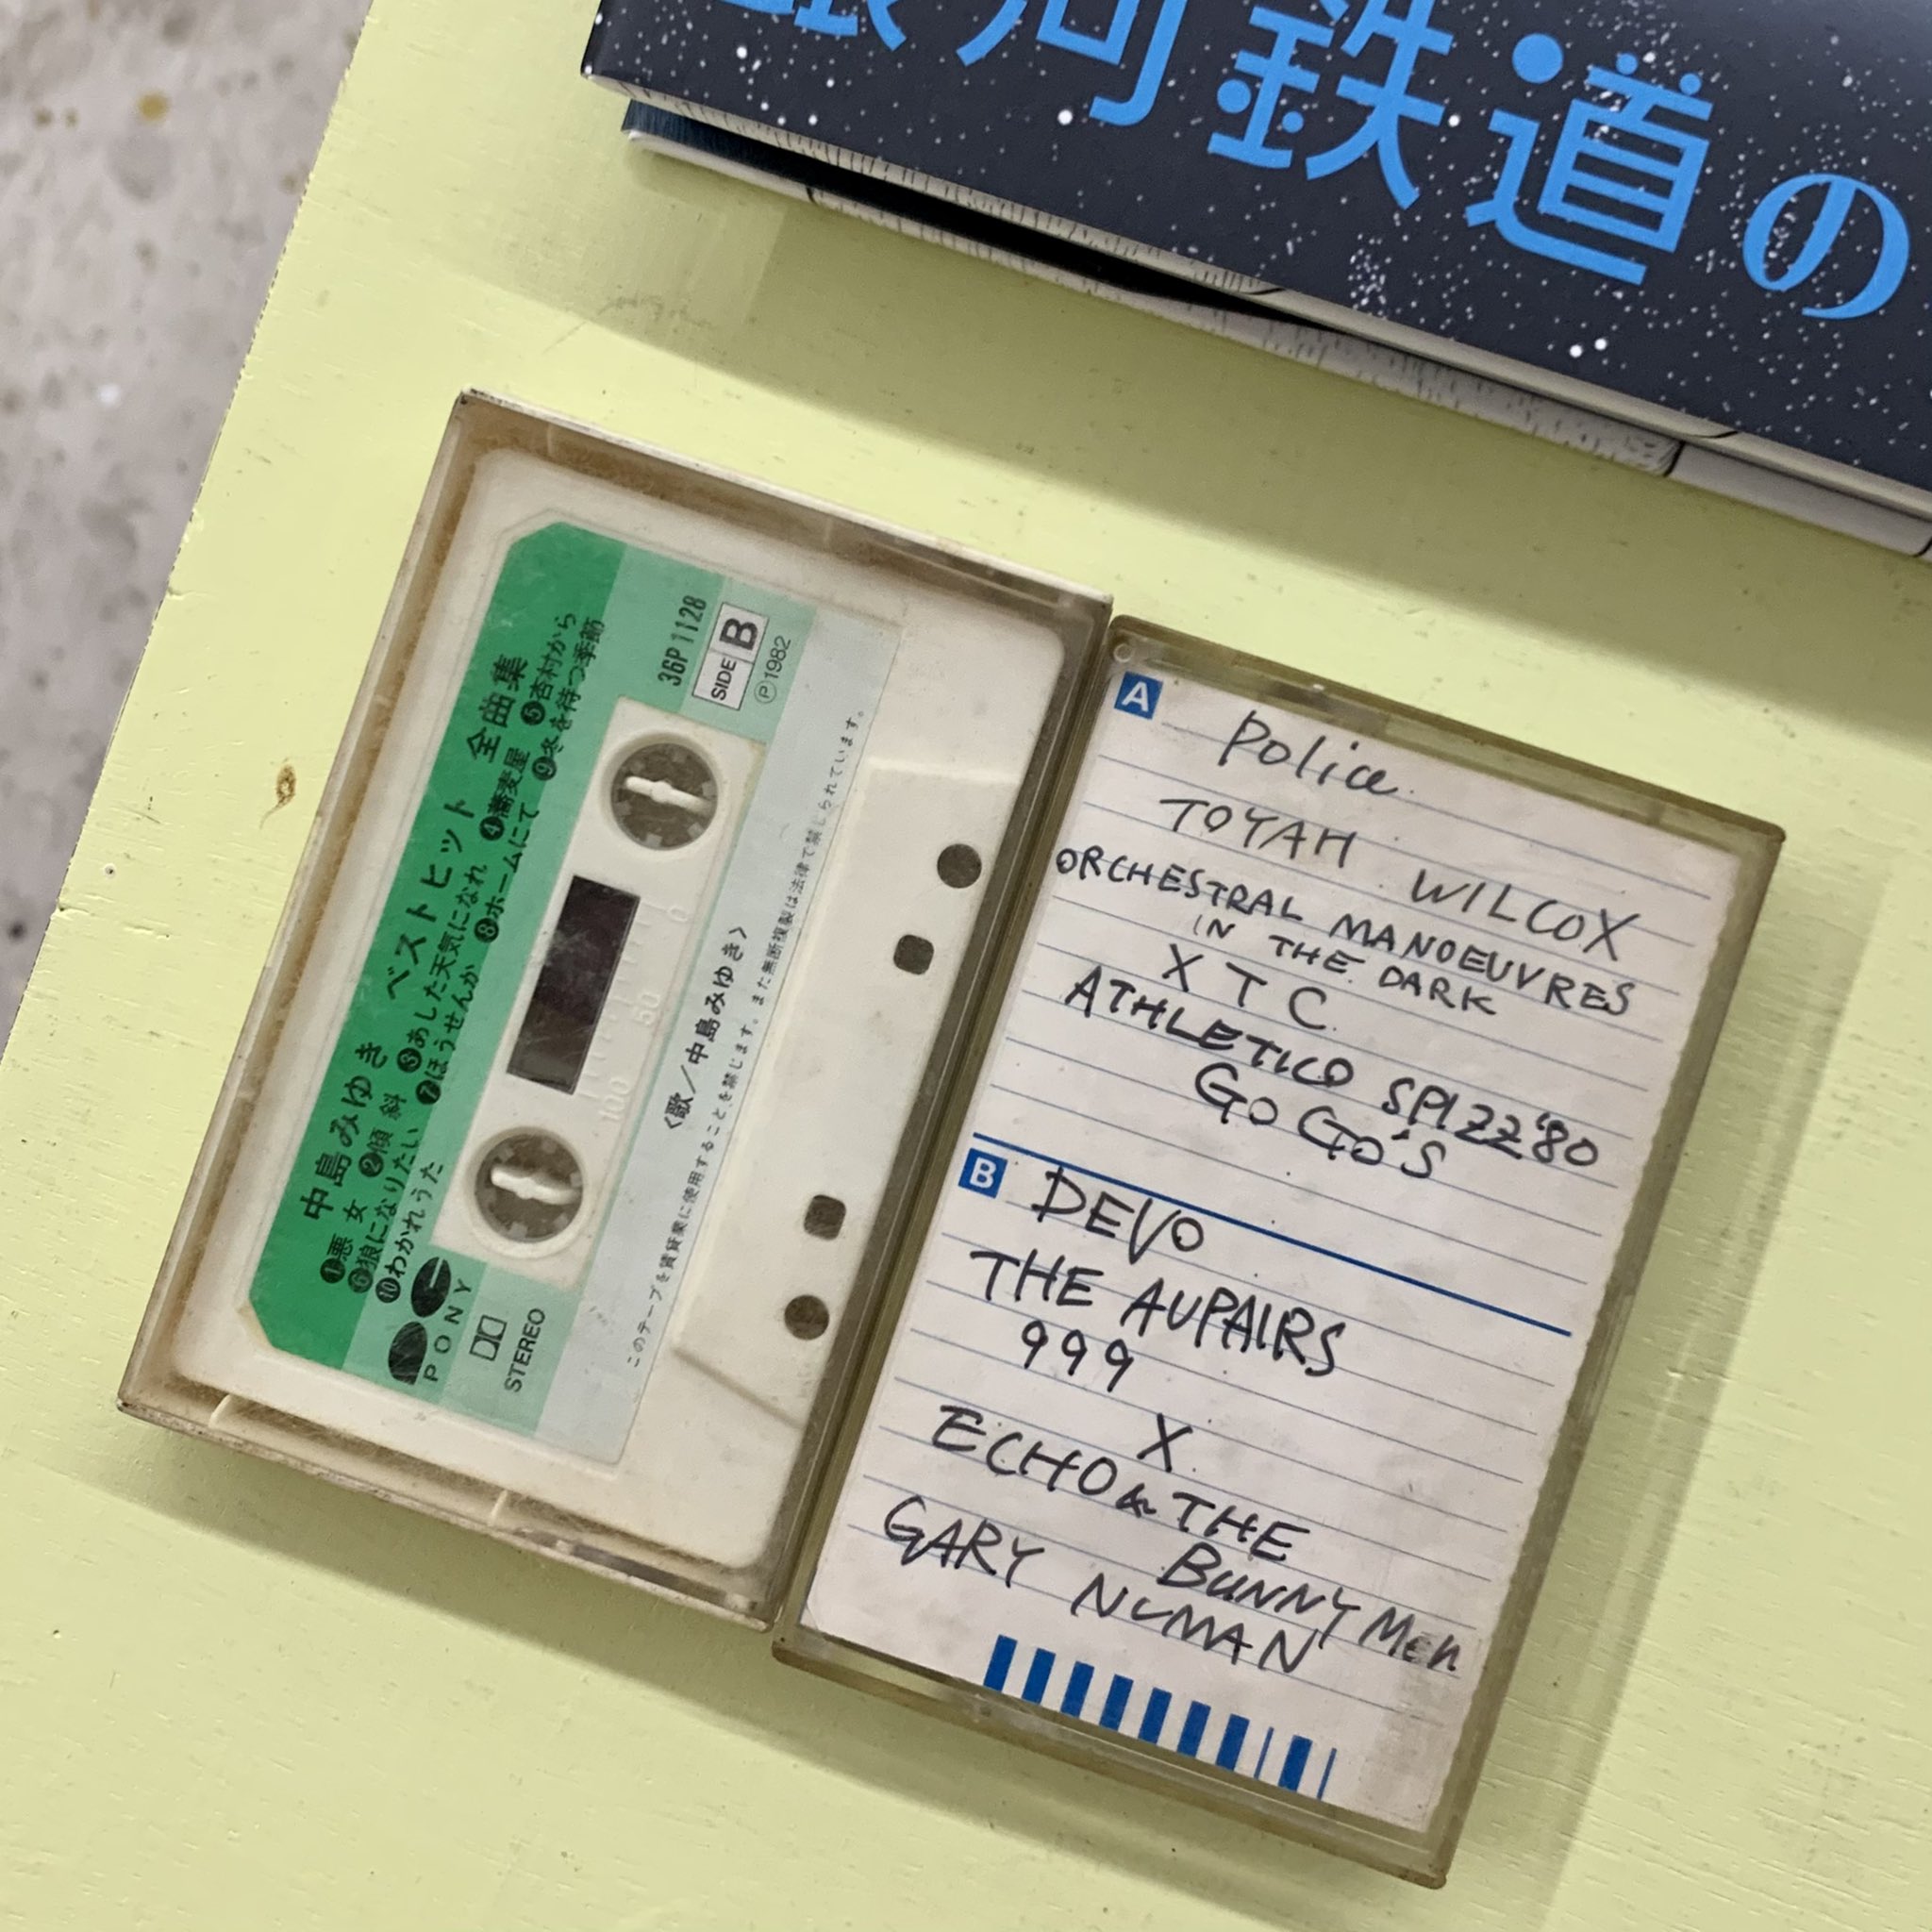 河鉄道の
中島みゆき ベストヒット 全曲集
❶悪女 ❷傾斜 ❸あした天気になれ ❹蕎麦屋 ❺杏村から
❻狼になりたい ❼ほうせんか ❽ホームにて ❾冬を待つ季節
❿わかれうた
PONY
STEREO
36P1128
SIDE B
Ⓟ1982
100 50 0
〈歌／中島みゆき〉
このテープを賃貸業に使用することを禁じます。また無断複製は法律で禁じられています。
A
Police
TOYAH WILCOX
ORCHESTRAL MANOEUVRES
IN THE DARK
XTC
ATHLETICO SPIZZ '80
GO GO'S
B
DEVO
THE AUPAIRS
999
X
ECHO & THE
BUNNY MEN
GARY NUMAN